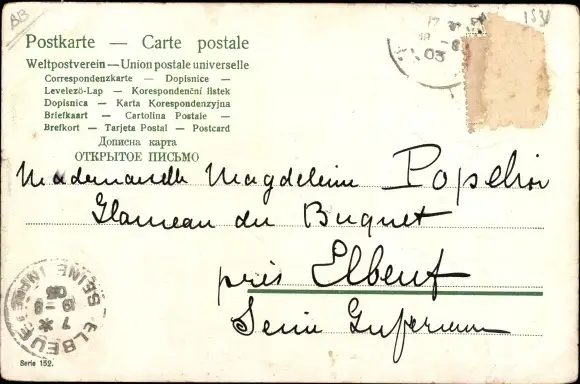 BB
1531
17
03
Postkarte — Carte postale
Weltpostverein — Union postale universelle
Correspondenzkarte — Dopisnice —
Levelezö-Lap — Korespondenční listek
Dopisnica — Karta Korespondenzyjna
Briefkaart — Cartolina Postale —
Brefkort — Tarjeta Postal — Postcard
Дописна карта
ОТКРЫТОЕ ПИСЬМО
Mademoiselle Magdeleine Popelin
Hameau du Buquet
près Elbeuf
Seine Inférieure
ELBEUF
SEINE INFRE
7 * 9 - 9
03
Serie 152.